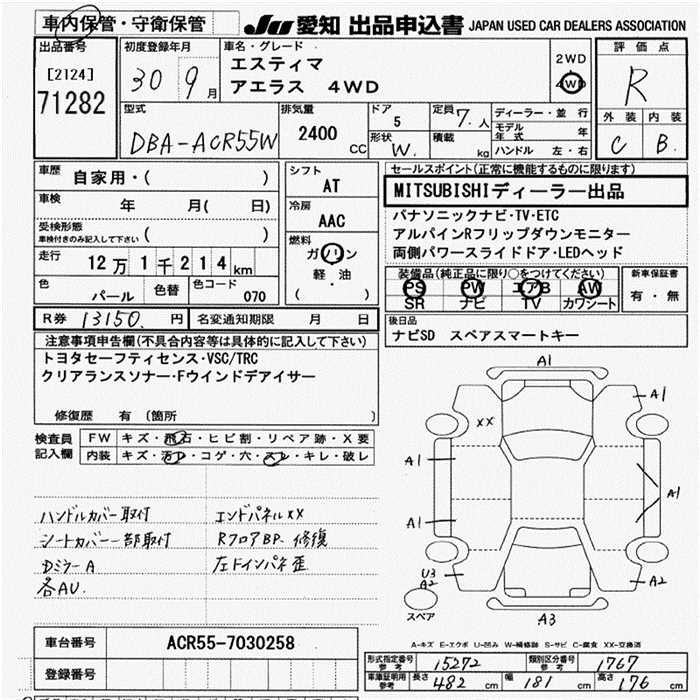 車内保管・守衛保管 JU 愛知 出品申込書 JAPAN USED CAR DEALERS ASSOCIATION
出品番号
[2124]
71282
初度登録年月
30 9月
車名・グレード
エスティマ
アエラス 4WD
2WD
4WD
評価点
R
外装 内装
C B.
型式
DBA-ACR55W
排気量
2400 CC
ドア
5
形状
W.
定員
7.人
積載
kg
ディーラー・並行
モデル年式 年
ハンドル 左・右
車歴
自家用・( )
車検
年 月( 日)
受検形態
車検付きのみ記入して下さい ( )
走行
12万1千214km
色
パール
色替
色コード
070
シフト
AT
冷房
AAC
燃料
ガソリン
軽・油
( )
セールスポイント(正常に機能するものに限ります)
MITSUBISHIディーラー出品
パナソニックナビ・TV・ETC
アルパインRフリップダウンモニター
両側パワースライドドア・LEDヘッド
装備品(純正品に限り○をつけてください)
PS PW エアB AW
SR ナビ TV カワシート
新車保証書
有・無
R券 13150. 円 名変通知期限 月 日
後日品
ナビSD スペアスマートキー
注意事項申告欄(不具合内容等は具体的に記入して下さい)
トヨタセーフティセンス・VSC/TRC
クリアランスソナー・Fウインドデアイサー
修復歴 有 (箇所 )
検査員記入欄
FW キズ・飛石・ヒビ割・リペア跡・X要
内装 キズ・汚レ・コゲ・穴・スレ・キレ・破レ
ハンドルカバー取付 エンドパネルXX
シートカバー一部取付 RフロアBP. 修復
Dミラー A 左ドインパネ歪
各AU.
A1
A1
XX
A1
A1
A1
U3
A2
A2
スペア
A3
A-キズ E-エクボ U-凹み W-補修跡 S-サビ C-腐食 XX-交換済
車台番号 ACR55-7030258
登録番号
形式指定番号 参考 15272 類別区分番号 参考 1767
車庫証明用 参考 長さ 482 cm 幅 181 cm 高さ 176 cm